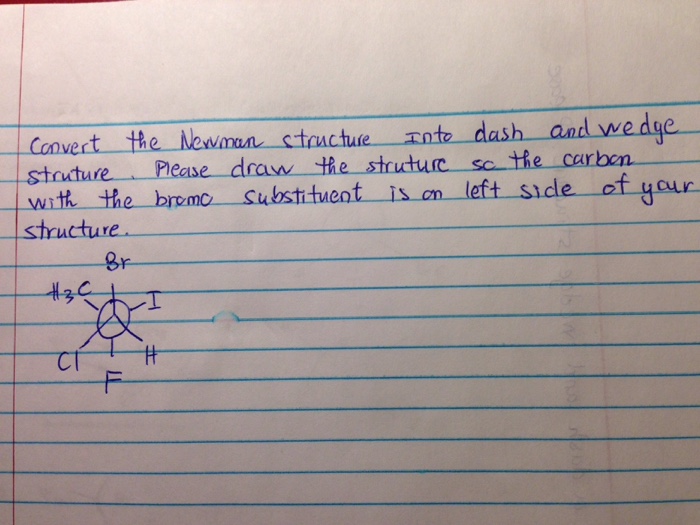 Convert the Newman structure Into dash and wedge
struture. Please draw the struture so the carbon
with the bromo substituent is on left side of your
structure.
Br
H3C I
Cl H
F